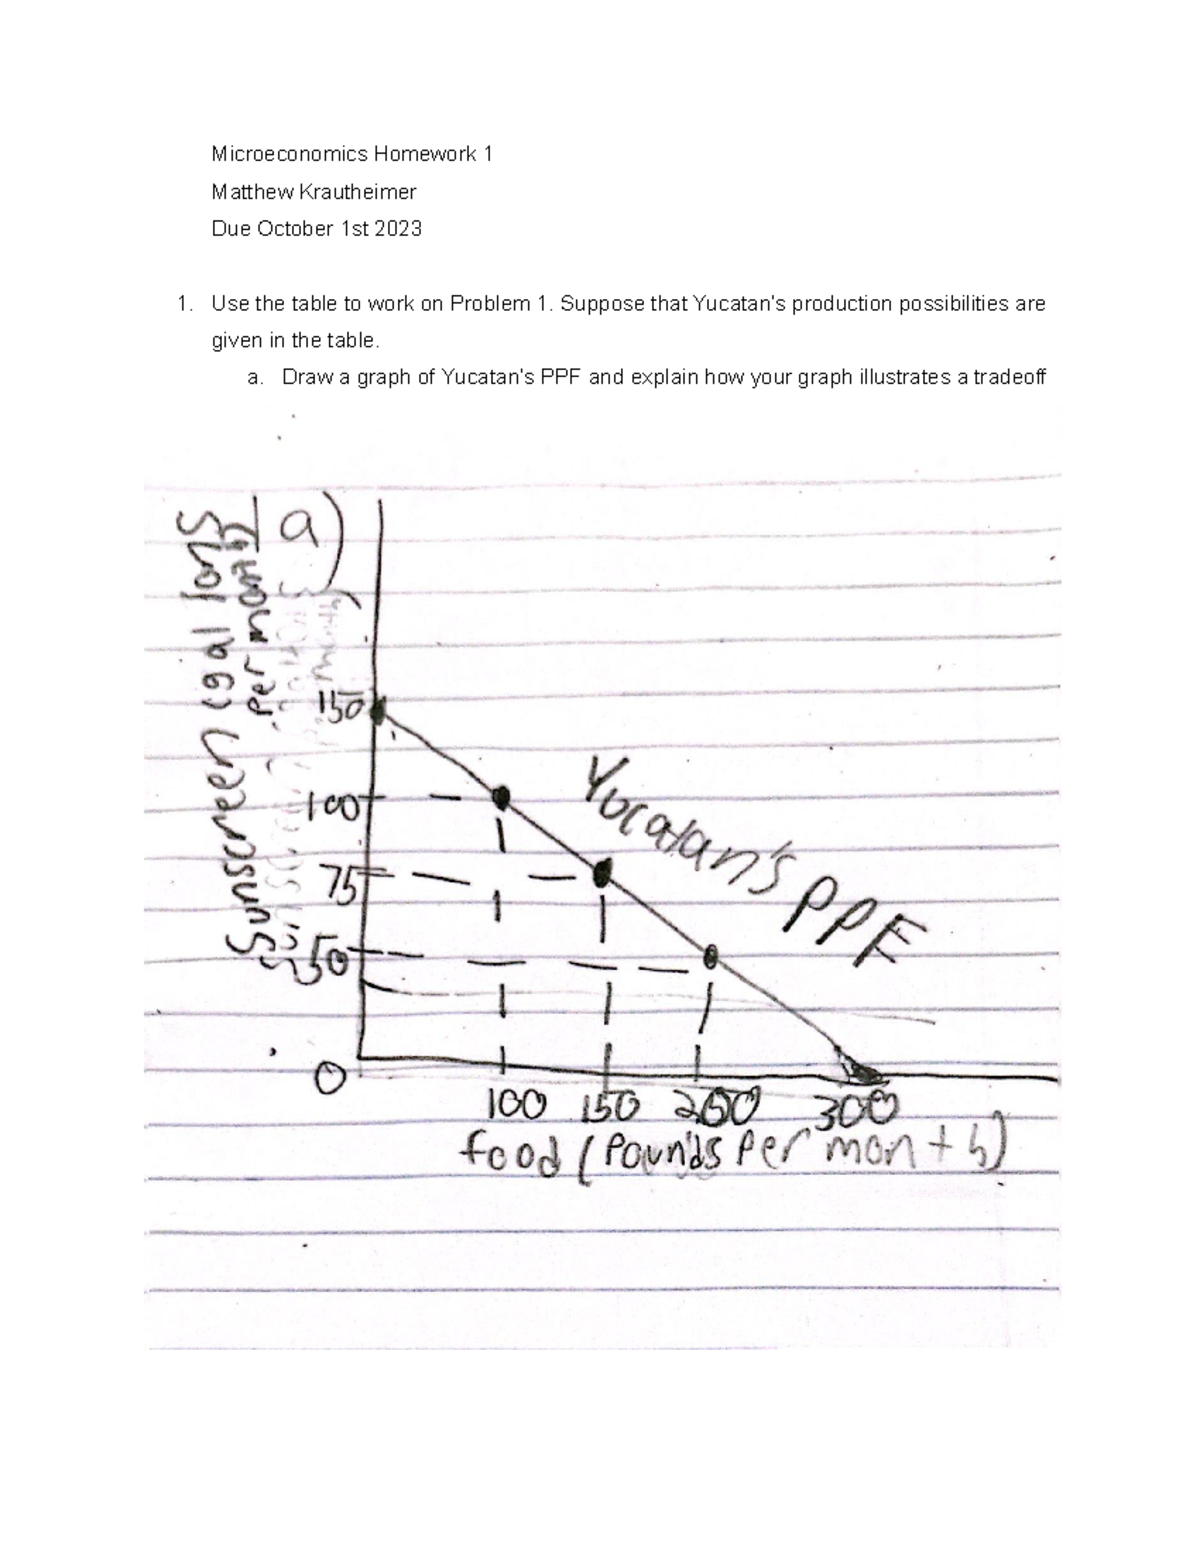 Microeconomics Homework 1
Matthew Krautheimer
Due October 1st 2023
1. Use the table to work on Problem 1. Suppose that Yucatan's production possibilities are
given in the table.
a. Draw a graph of Yucatan's PPF and explain how your graph illustrates a tradeoff
a)
Sunscreen (gallons
per month)
150
100
75
50
0
Yucatan's PPF
100 150 200 300
food (Pounds Per month)